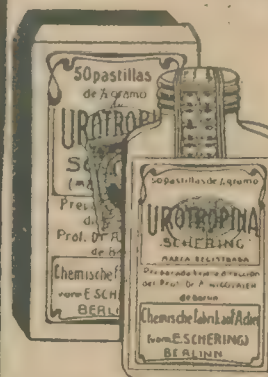 50 pastillas
de ½ gramo
de
UROTROPI
SC
(ma
Pre
d
Prof. Dr A
de
Chemische f
vorm E SCHE
BERLI
50 pastillas de ½ gramo
UROTROPINA
SCHERING
MARCA REGISTRADA
Preparada bajo la dirección
del Prof. Dr A. NICOLAIER
de
Chemische Fabrik auf Actien
(vorm. E. SCHERING)
BERLINN